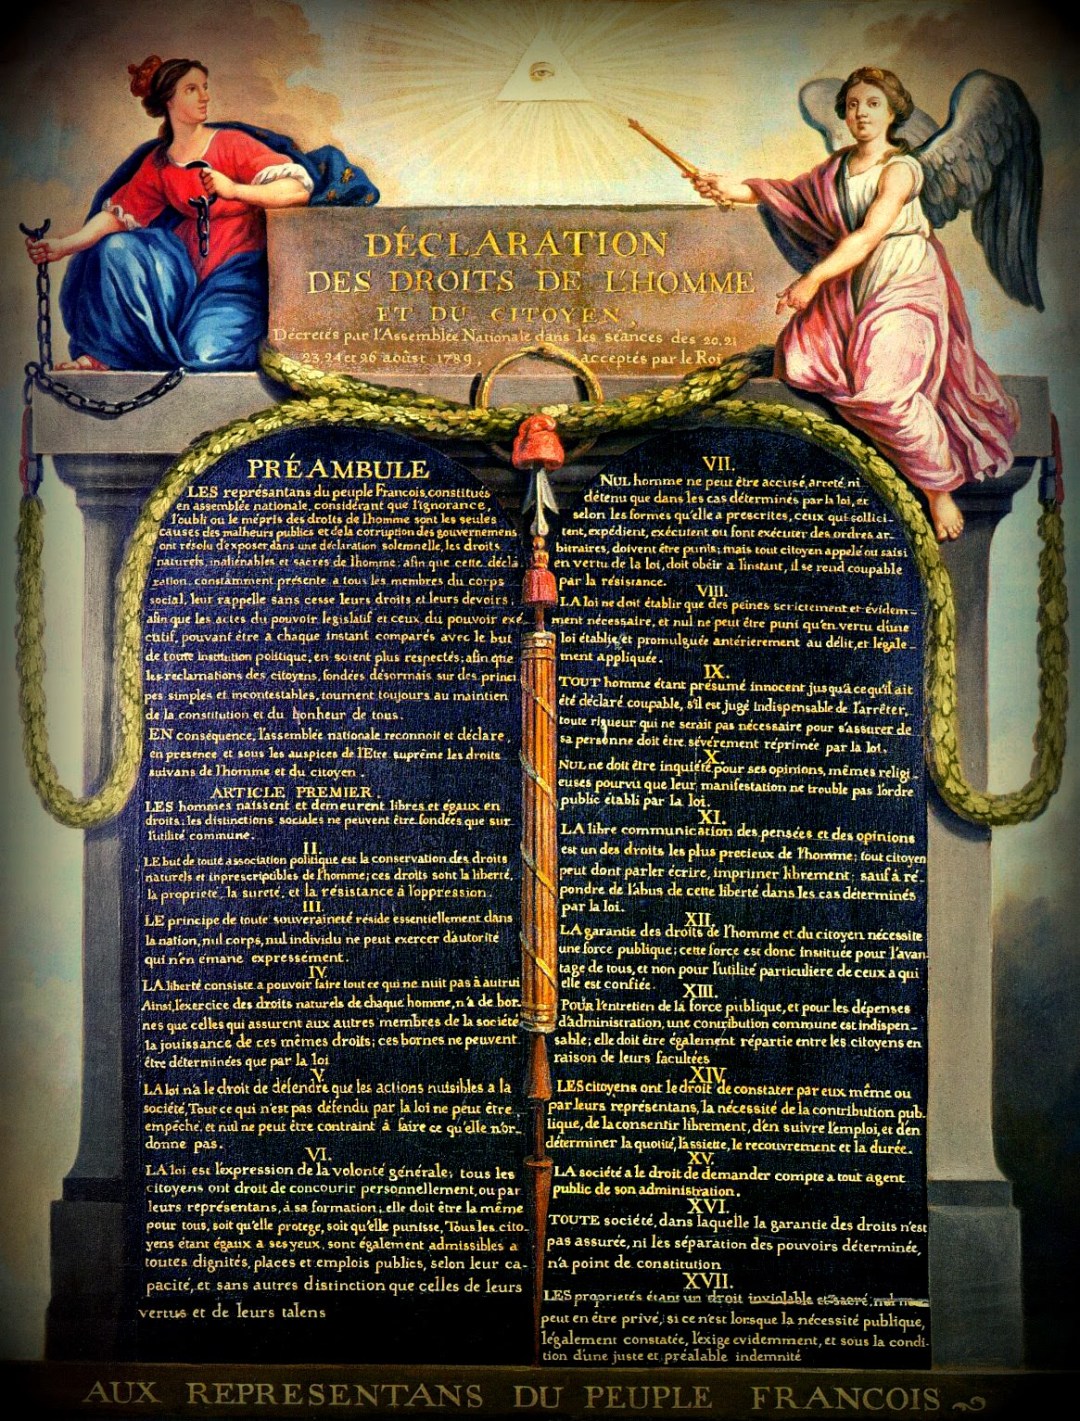 DÉCLARATION
DES DROITS DE L'HOMME
ET DU CITOYEN,
Décretés par l'Assemblée Nationale dans les séances des 20. 21
23, 24 et 26 août 1789, acceptés par le Roi
PRÉAMBULE
LES représantans du peuple Francois, constitués
en assemblée nationale, considérant que l'ignorance,
l'oubli ou le mépris des droits de l'homme sont les seules
causes des malheurs publics et de la corruption des gouvernemens
ont résolu d'exposer dans une déclaration solemnelle, les droits
naturels, inaliénables et sacrés de l'homme: afin que cette décla
ration, constamment présente a tous les membres du corps
social, leur rappelle sans cesse leurs droits et leurs devoirs;
afin que les actes du pouvoir legislatif et ceux du pouvoir exé
cutif, pouvant être a chaque instant comparés avec le but
de toute institution politique, en soient plus respectés; afin que
les reclamations des citoyens, fondées désormais sur des princi
pes simples et incontestables, tournent toujours au maintien
de la constitution et du bonheur de tous.
EN conséquence, l'assemblée nationale reconnoit et déclare,
en presence et sous les auspices de l'Etre suprême les droits
suivans de l'homme et du citoyen.
ARTICLE PREMIER.
LES hommes naissent et demeurent libres et égaux en
droits. les distinctions sociales ne peuvent être fondées que sur
l'utilité commune.
II.
LE but de toute association politique est la conservation des droits
naturels et inprescriptibles de l'homme; ces droits sont la liberté,
la proprieté, la sureté, et la résistance à l'oppression.
III.
LE principe de toute souveraineté réside essentiellement dans
la nation, nul corps, nul individu ne peut exercer d'autorité
qui n'en émane expressement.
IV.
LA liberté consiste a pouvoir faire tout ce qui ne nuit pas à autrui
Ainsi, l'exercice des droits naturels de chaque homme, n'a de bor-
nes que celles qui assurent aux autres membres de la société
la jouissance de ces mêmes droits; ces bornes ne peuvent
être déterminées que par la loi
V.
LA loi n'a le droit de défendre que les actions nuisibles a la
société, Tout ce qui n'est pas défendu par la loi ne peut être
empêché, et nul ne peut être contraint à faire ce qu'elle n'or-
donne pas.
VI.
LA loi est l'expression de la volonté générale; tous les
citoyens ont droit de concourir personnellement, ou par
leurs représentans, à sa formation; elle doit être la même
pour tous, soit qu'elle protege, soit qu'elle punisse, Tous les cito-
yens étant égaux a ses yeux, sont également admissibles a
toutes dignités, places et emplois publics, selon leur ca-
pacité, et sans autres distinction que celles de leurs
vertus et de leurs talens
VII.
NUL homme ne peut être accusé, arreté, ni
détenu que dans les cas déterminés par la loi, et
selon les formes qu'elle a prescrites, ceux qui sollici-
tent, expédient, exécutent ou font exécuter des ordres ar-
bitraires, doivent être punis; mais tout citoyen appelé ou saisi
en vertu de la loi, doit obéir a l'instant, il se rend coupable
par la résistance.
VIII.
LA loi ne doit établir que des peines strictement et évidem-
ment nécessaire, et nul ne peut être puni qu'en vertu d'une
loi établie et promulguée antérierement au délit, et légale-
ment appliquée.
IX.
TOUT homme étant présumé innocent jusqu'a ce qu'il ait
été déclaré coupable, s'il est jugé indispensable de l'arrêter,
toute rigueur qui ne serait pas nécessaire pour s'assurer de
sa personne doit être sévérement réprimée par la loi.
X.
NUL ne doit être inquiété pour ses opinions, mêmes religi-
euses pourvu que leur manifestation ne trouble pas l'ordre
public établi par la loi.
XI.
LA libre communication des pensées et des opinions
est un des droits les plus precieux de l'homme; tout citoyen
peut dont parler écrire, imprimer librement; sauf à ré
pondre de l'abus de cette liberté dans les cas déterminés
par la loi.
XII.
LA garantie des droits de l'homme et du citoyen nécessite
une force publique; cette force est donc instituée pour l'avan
tage de tous, et non pour l'utilité particuliere de ceux a qui
elle est confiée.
XIII.
POUR l'entretien de la force publique, et pour les dépenses
d'administration, une contribution commune est indispen-
sable; elle doit être également répartie entre les citoyens en
raison de leurs facultées
XIV.
LES citoyens ont le droit de constater par eux même ou
par leurs représentans, la nécessité de la contribution pub-
lique, de la consentir librement, d'en suivre l'emploi, et d'en
déterminer la quotité, l'assiette, le recouvrement et la durée.
XV.
LA société a le droit de demander compte a tout agent
public de son administration.
XVI.
TOUTE société, dans laquelle la garantie des droits n'est
pas assurée, ni les séparation des pouvoirs déterminée,
n'a point de constitution
XVII.
LES proprietés étant un droit inviolable et sacré, nul ne
peut en être privé, si ce n'est lorsque la nécessité publique,
légalement constatée, l'exige evidemment, et sous la condi-
tion d'une juste et préalable indemnité
AUX REPRESENTANS DU PEUPLE FRANCOIS